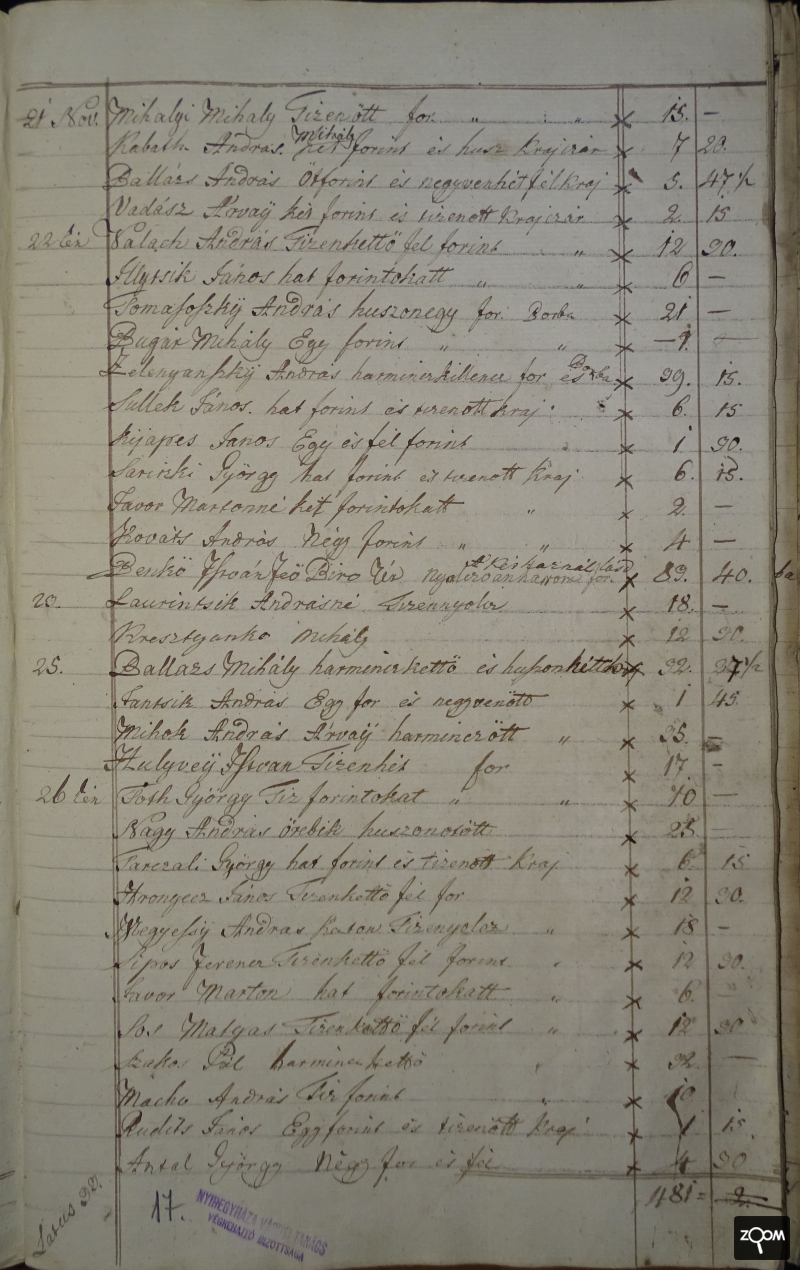 21 Nov. Mihalyi Mihaly Tizenött for. " " x 15. –
Mihály
Kabath András. két forint és husz Krajczár x 7 20.
Ballázs András Ötforint és negyvenhét fél Kraj x 5. 47 ½
Vadász Árvaÿ két forint és tizenött Krajczár x 2. 15
22 Valach András Tizenkettö fél forint " x 12 30.
Illytsik János hat forintokatt " " x 6 –
Tomasofszkÿ András huszonegy for. x 21 –
Bugár Mihály Egy forint " " x – 1. –
Zelenyánszkÿ András harminczkillencz for és x 39. 15.
Sullek János. hat forint és tizenött Kraj. x 6. 15
János Egy és fél forint x 1 30.
György hat forint és tizenött Kraj x 6. 15.
Favor Martonné két forintokatt " x 2. –
Kováts András Négy forint " " x 4 –
Benkö István Feö Biro Úr x 83. 40.
23. Laurintsik Andrásné Tizennyolcz x 18. –
Kresztyanko Mihály x 12 30.
25. Ballazs Mihály harminczkettö és x 32. 37 ½
Jantsik András Egy for és negyvenött x 1 45
Mihok András Árvaÿ harminczött " x 35. –
Hulyveÿ István Tizenhét for x 17 –
26 Toth György Tiz forintokat " " x 10 –
Nagy András örebik huszonötött x 25 –
Tarczali György hat forint és tizenött Kraj x 6. 15
Hrongecz János Tizenkettö fél for x 12 30.
Megyessÿ András Katon Tizenyolcz " x 18 –
Sipos Ferencz Tizenkettö fél forint " x 12 30.
Favor Marton hat forintokatt " x 6. –
Sos Matyas Tizenkettö fél forint " x 12 30
Szakos Pál harmincz kettö " x 32. –
Macho András Tiz forint " x 10
Rudits János Egy forint és tizenött Kraj x 1 15
Antal György Négy for és fél x 4 30
481 = 2.
Latus
17.
NYIREGYHÁZA VÁROSI TANÁCS
VÉGREHAJTÓ BIZOTTSÁGA
ZOOM